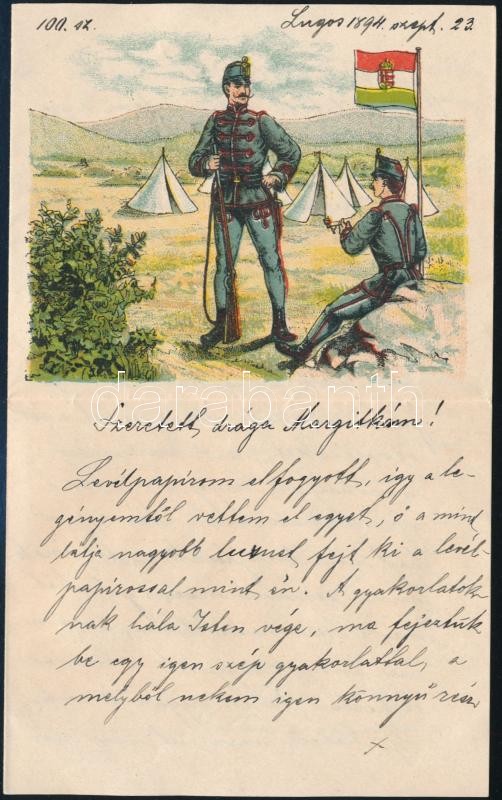 100. sz.
Lugos 1894. szept. 23.
Szeretett drága Margitkám!
Levélpapírom elfogyott, így a le-
gényemtől vettem el egyet, ő a mint
látja nagyobb luxust fejt ki a levél-
papirossal mint én. A gyakorlatok-
nak hála Isten vége, ma fejeztük
be egy igen szép gyakorlattal, a
melyből nekem igen könnyű rész
darabanth.com